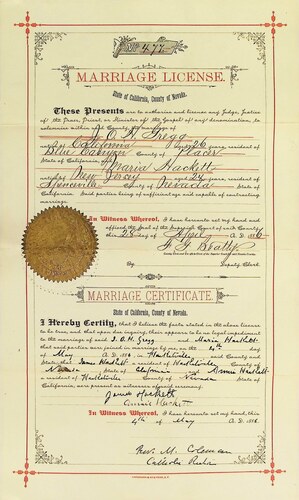 No. 477
MARRIAGE LICENSE.
State of California, County of Nevada.
These Presents are to authorize and license any Judge, Justice
of the Peace, Priest, or Minister of the Gospel of any denomination, to
solemnize within said County the marriage of
J. O. H. Gregg
California 26
Blue Canyon County of Placer
State of California
Maria Hackett
New Jersey 24
County of Nevada
State of California. Said parties being of sufficient age and capable of contracting
marriage.
In Witness Whereof, I have hereunto set my hand and
affixed the Seal of the Superior Court of said County
this 28 day of April A. D. 1886
By Deputy Clerk.
MARRIAGE CERTIFICATE.
State of California, County of Nevada.
I Hereby Certify, that I believe the facts stated in the above license
to be true, and that upon due inquiry, there appears to be no legal impediment to
the marriage of said J. O. H. Gregg and Maria Hackett
that said parties were joined in marriage by me, on the 4th day of
May A. D. 1886, in County and
State; that James Hackett a resident of
Nevada State of California and Annie Hackett
a resident of County of Nevada State of
California, were present as witnesses of said ceremony.
James Hackett
Annie Hackett
In Witness Whereof, I have hereunto set my hand, this
4th day of May A. D. 1886.
Rev. M. Coleman
Catholic Rector